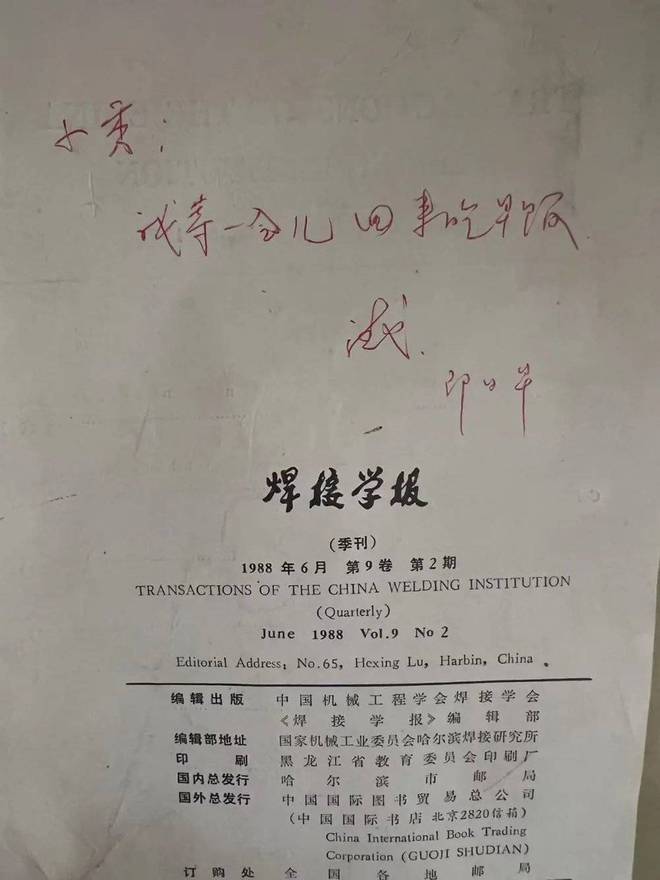 小黄：
我等一会儿回来吃早饭
即日早
焊接学报
(季刊)
1988 年 6 月 第 9 卷 第 2 期
TRANSACTIONS OF THE CHINA WELDING INSTITUTION
(Quarterly)
June 1988 Vol.9 No 2
Editorial Address: No.65, Hexing Lu, Harbin, China .
编辑出版 中国机械工程学会焊接学会
《焊接学报》编辑部
编辑部地址 国家机械工业委员会哈尔滨焊接研究所
印刷 黑龙江省教育委员会印刷厂
国内总发行 哈尔滨市邮局
国外总发行 中国国际图书贸易总公司
(中国国际书店 北京2820信箱)
China International Book Trading
Corporation (GUOJI SHUDIAN)
订购处 全国各地邮局